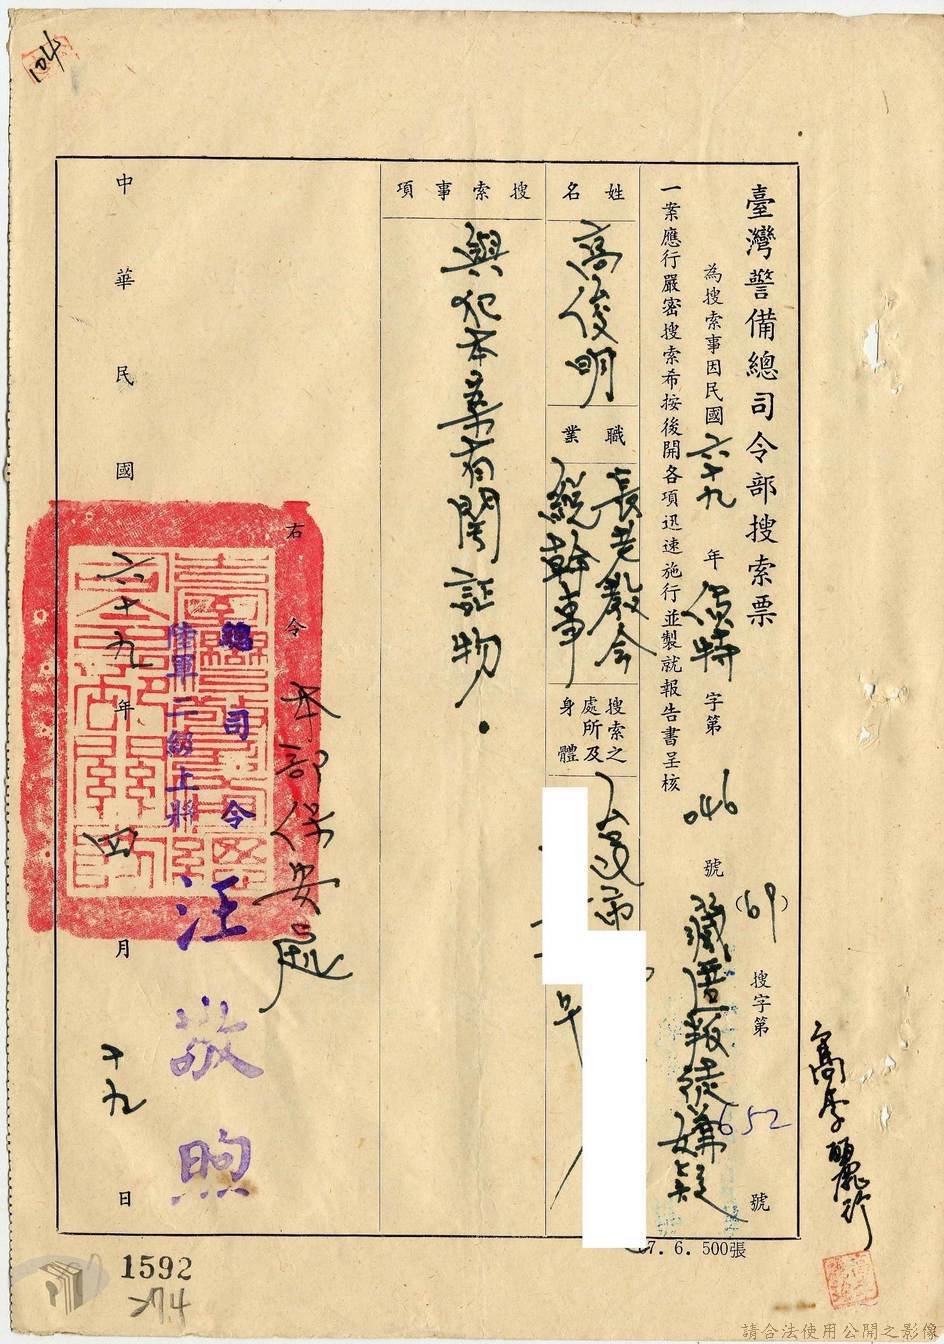 臺灣警備總司令部搜索票
(69)搜字第652號
為搜索事因民國六十九年偵特字第046號藏匿叛徒嫌疑
一案應行嚴密搜索希按後開各項迅速施行並製就報告書呈核
姓名
高俊明
職業
長老教會
總幹事
搜索之
處所及
身體
搜索事項
與犯本案有關証物.
右令本部保安處
總司令
陸軍二級上將
汪敬煦
中華民國六十九年四月十九日
高李麗珍
104
7.6.500張
1592
274
請合法使用公開之影像